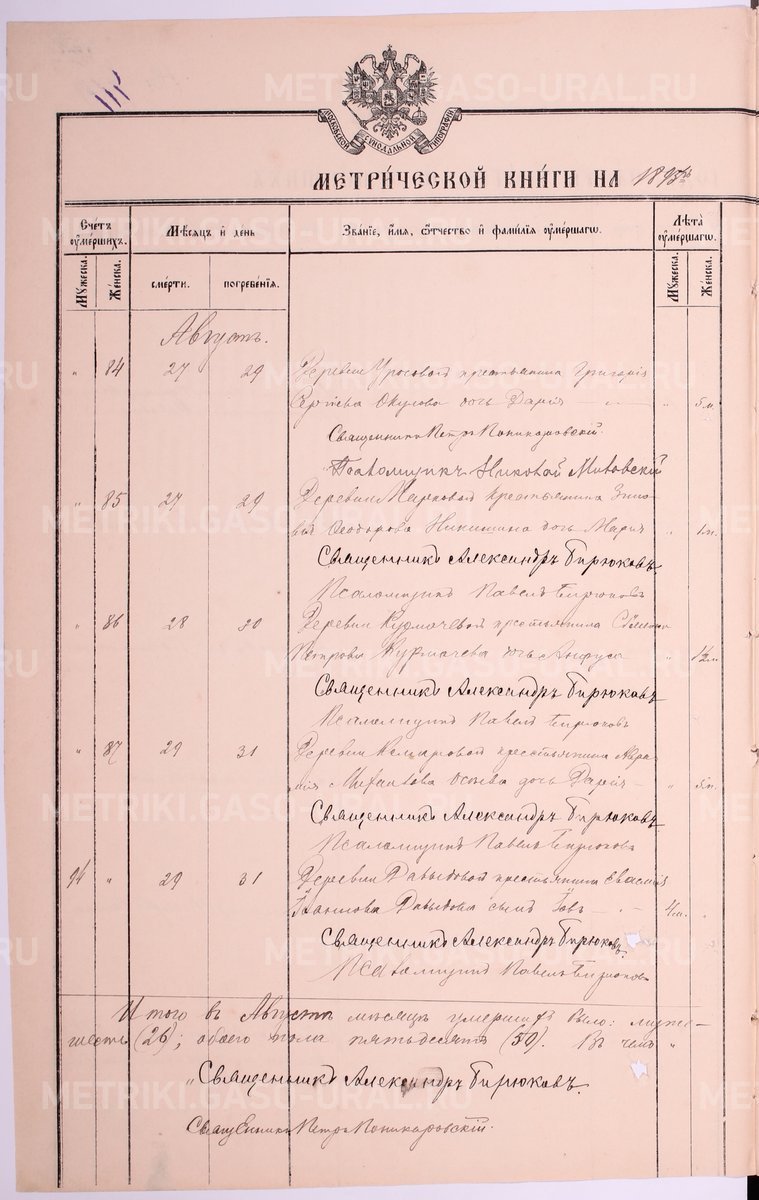 МОСКОВСКОЙ СѴНОДАЛЬНОЙ ТИПОГРАФІИ
МЕТРИ́ЧЕСКОЙ КНИ́ГИ НА
Счетъ ᲂу҆ме́ршихъ.
Мѣсяцъ и҆ день
Зва́нїе, и҆́мя, ѻ҆́тчество и҆ фами́лїя ᲂу҆ме́ршагѡ.
Лѣ́та ᲂу҆ме́ршагѡ.
Мꙋ́жеска.
Же́нска.
сме́рти.
погребе́нїя.
Мꙋ́жеска.
Же́нска.
Августъ.
" 84 27 29 Деревни крестьянина Григорія
Сергѣева Окулова дочь Дарія " 5 м.
Священникъ Петръ Поникаровскій
Псаломщикъ Николай
" 85 27 29 Деревни Марковой крестьянина Зино-
вія Ѳеодорова Никишина дочь Марія "
Священникъ Александръ Бирюковъ.
Псаломщикъ Павелъ Бирюковъ
" 86 28 30 Деревни Курмачевой крестьянина
Петрова Курмачева дочь Анфуса "
Священникъ Александръ Бирюковъ
Псаломщикъ Павелъ Бирюковъ
" 87 29 31 Деревни Комаровой крестьянина Авра-
мія Михайлова дочь Дарія "
Священникъ Александръ Бирюковъ
Псаломщикъ Павелъ Бирюковъ
94 " 29 31 Деревни Давыдовой крестьянина
Іоаннова Давыдова сынъ Іовъ 4 м. "
Священникъ Александръ Бирюковъ.
Псаломщикъ Павелъ Бирюковъ
Итого въ Августѣ мѣсяцѣ умершихъ было: муже-
шесть (26); обоего пола пятьдесятъ (50). Въ чемъ "
"Священникъ Александръ Бирюковъ.
Священникъ Петръ Поникаровскій.
METRIKI.GASO-URAL.RU